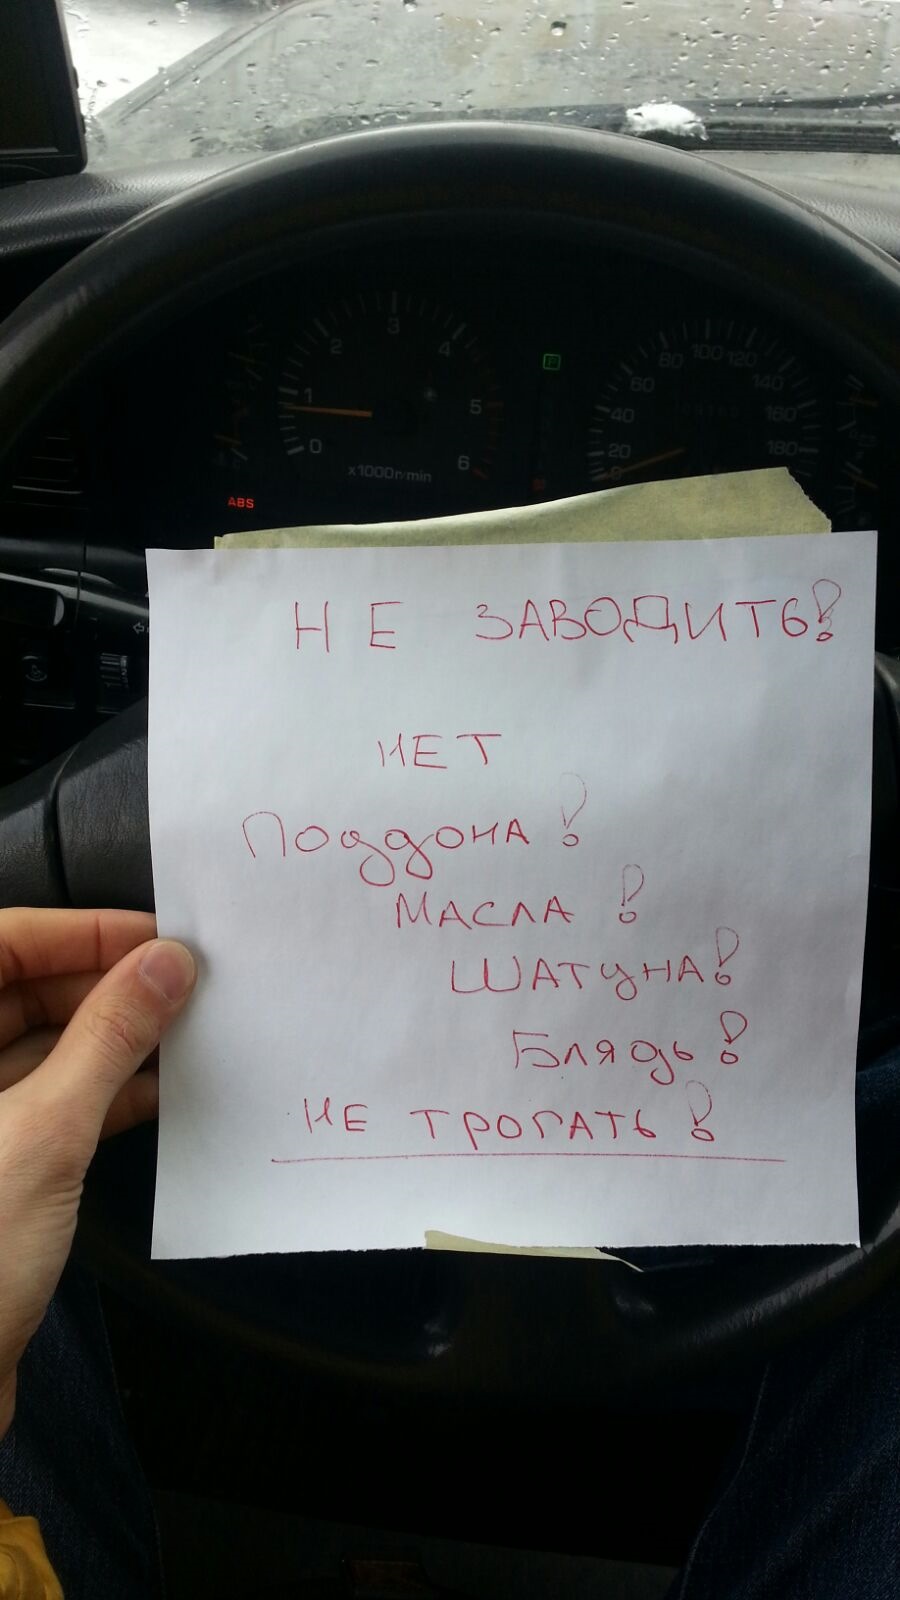 3
2
4
1
5
0
6
x1000r/min
ABS
P
100
80
120
60
140
40
160
20
180
0
НЕ ЗАВОДИТЬ!
НЕТ
Поддона!
Масла!
Шатуна!
Блядь!
НЕ ТРОГАТЬ!